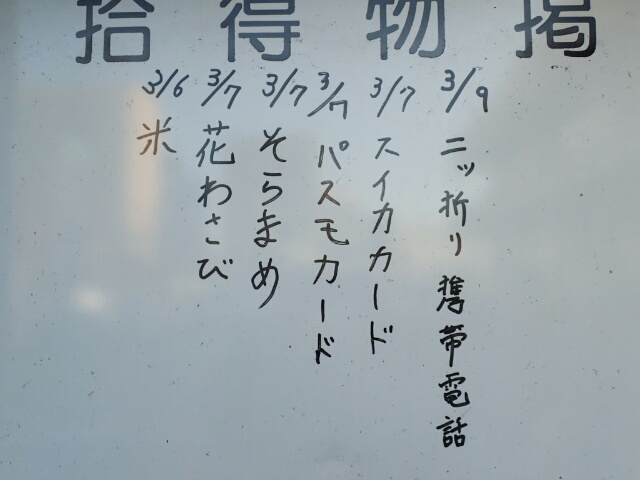 拾得物掲
3/9 二ッ折り携帯電話
3/7 スイカカード
3/7 パスモカード
3/7 そらまめ
3/7 花わさび
3/6 米